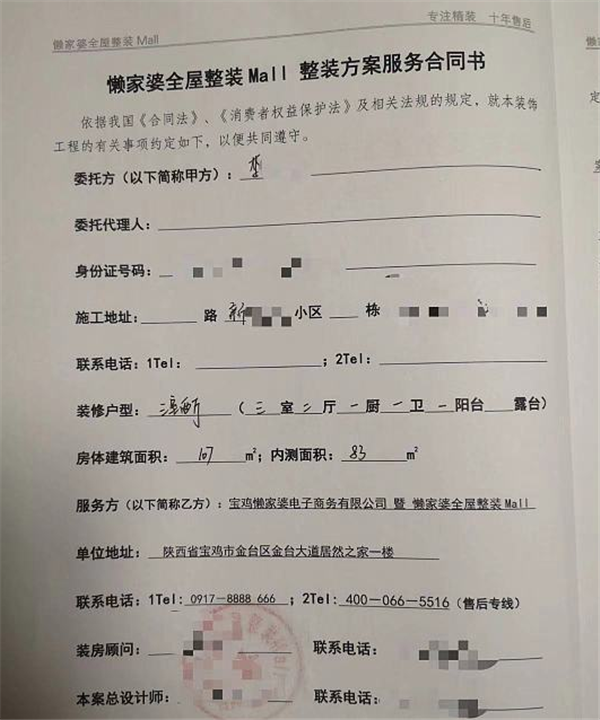 懒家婆全屋整装Mall
专注精装 十年售后
懒家婆全屋整装Mall 整装方案服务合同书
依据我国《合同法》、《消费者权益保护法》及相关法规的规定，就本装饰
工程的有关事项约定如下，以便共同遵守。
委托方（以下简称甲方）：
委托代理人：
身份证号码：
施工地址： 路 新 小区 栋
联系电话：1Tel： ；2Tel：
装修户型： （三室二厅一厨一卫一阳台 露台）
房体建筑面积：107 m²；内测面积：83 m²
服务方（以下简称乙方）：宝鸡懒家婆电子商务有限公司 暨 懒家婆全屋整装Mall
单位地址：陕西省宝鸡市金台区金台大道居然之家一楼
联系电话：1Tel：0917－8888 666 ；2Tel：400－066－5516（售后专线）
装房顾问： 联系电话：
本案总设计师： 联系电话：